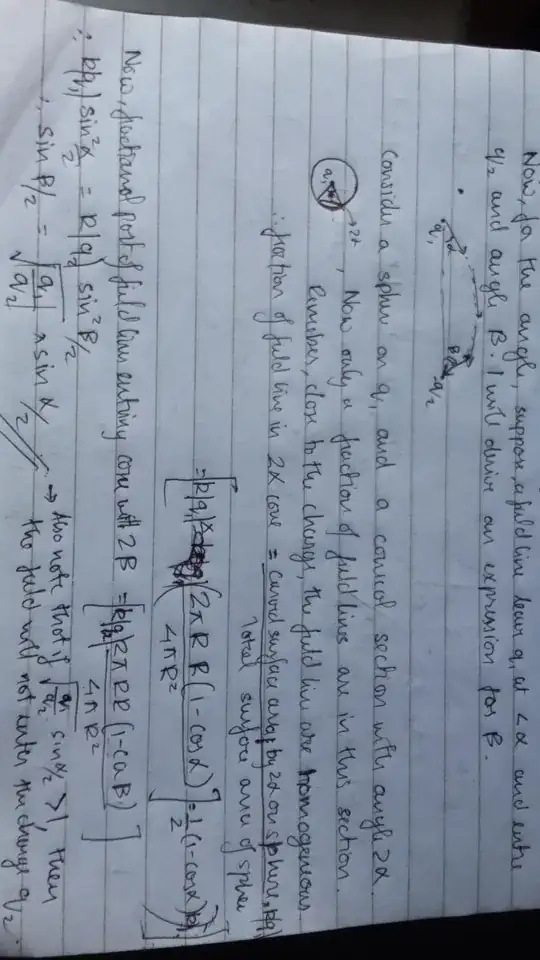 Now, for the angle, suppose, a field line leave q₁ at <α and enters
q₂ and angle β. I will derive an expression for β.
q₁ α β -q₂
Consider a sphere on q₁ and a conical section with angle 2α.
q₁ 2α , Now only a fraction of field lines are in this section.
Remember, close to the charge, the field line are homogeneous.
∴ fraction of field line in 2α cone = curved surface area by 2α on sphere × k|q₁|
Total surface area of sphere
= [k|q₁| (2πR R(1-cosα) / 4πR²)] = [1/2 (1-cosα) k|q₁|]
Now, fractional part of field line entering cone with 2β = [k|q₂| 2πRR(1-cosβ) / 4πR²]
∴ k|q₁| sin² α/2 = k|q₂| sin² β/2
∴ sin β/2 = √|q₁/q₂| × sin α/2 → Also note that if √q₁/q₂ sin α/2 > 1, then
the field will not enter the charge q₂.